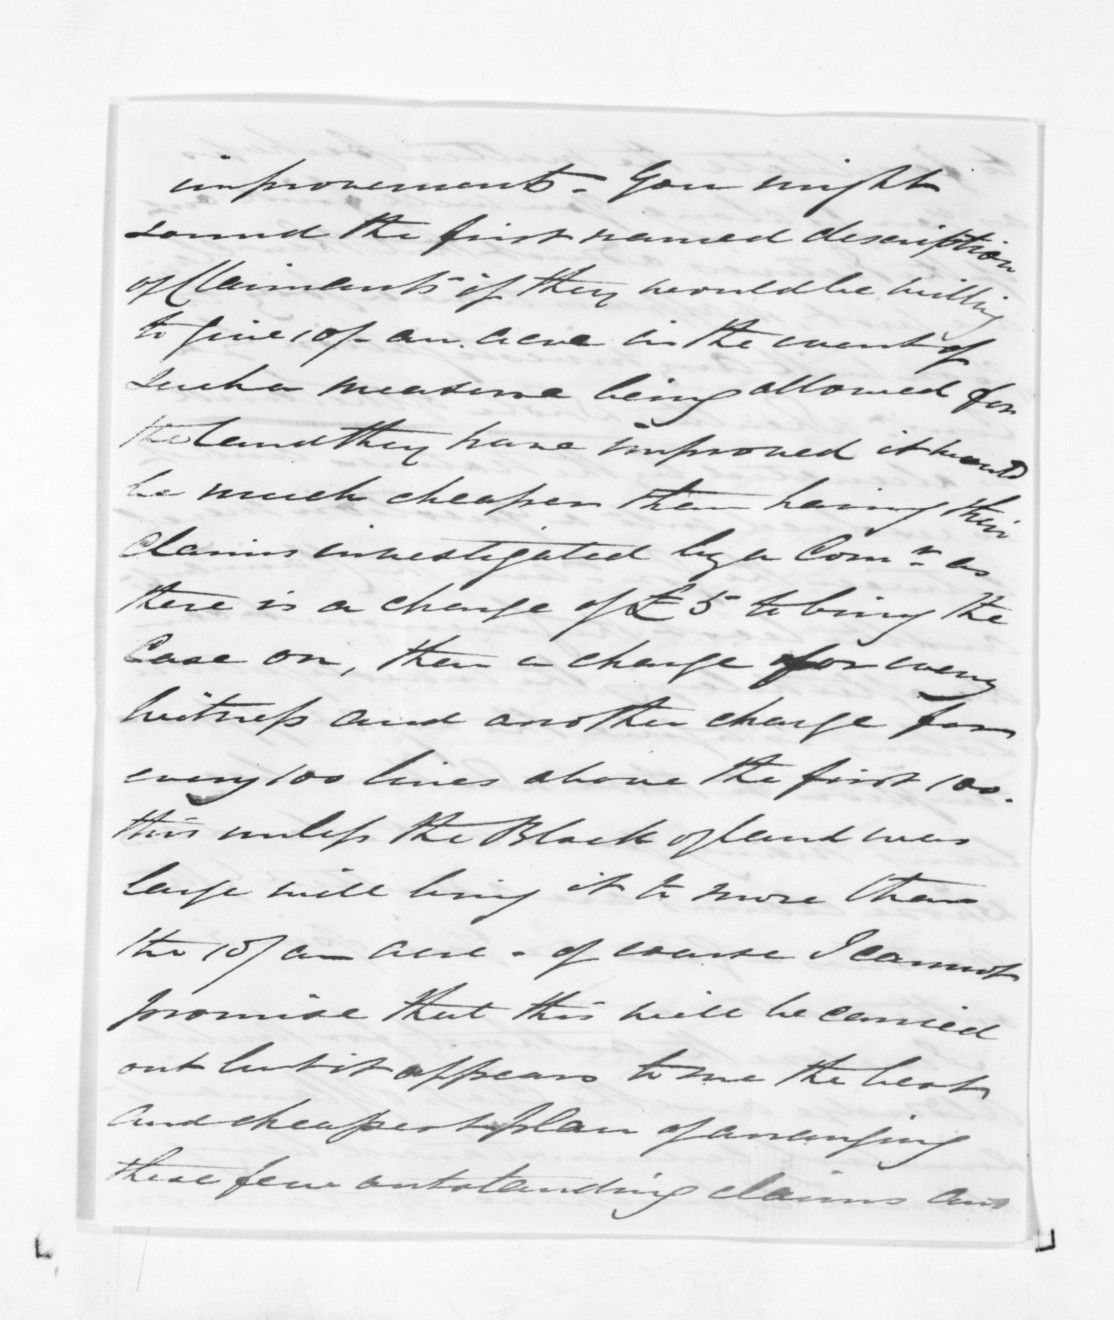 improvements. You might
sound the first named description
of Claimants if they would be willing
to give 10/- an acre in the event of
such a measure being allowed for
the land they have improved it would
be much cheaper than having their
claims investigated by a Comr. as
there is a charge of £5 to bring the
Case on, then a charge for every
witness and another charge for
every 100 lines above the first 100.
this unless the Block of land was
large will bring it to more than
the 10/ an acre - of course I cannot
promise that this will be carried
out but it appears to me the best
and cheapest plan of arranging
these few outstanding claims and